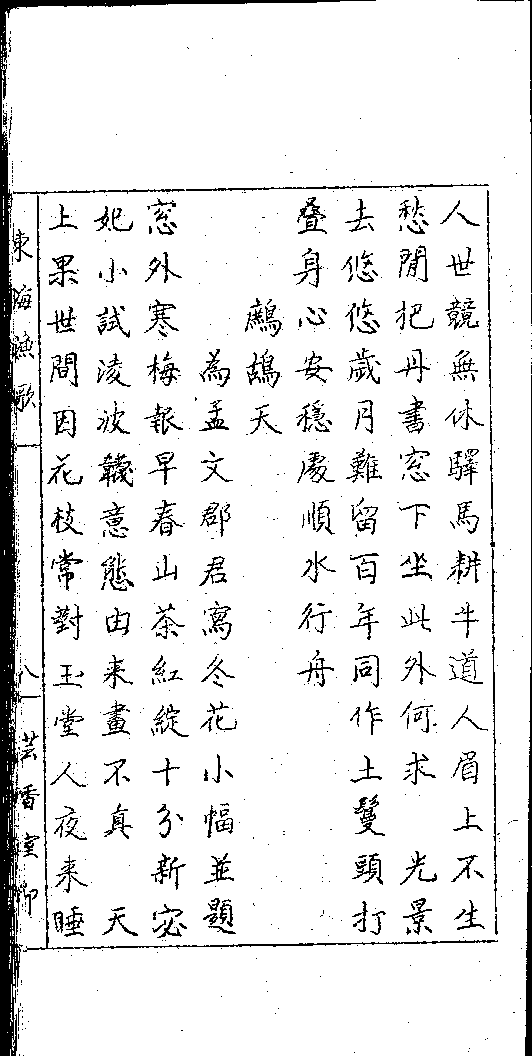 人世競無休驛馬耕牛道人眉上不生
愁閒把丹書窓下坐此外何求　光景
去悠悠歲月難留百年同作土鬘頭打
疊身心安穩處順水行舟
鷓鴣天
為孟文郡君寫冬花小幅並題
窓外寒梅報早春山茶紅綻十分新宓
妃小試淩波襪意態由来畫不真　天
上果世間因花枝常對玉堂人夜来睡
東海漁歌
八
芸香室